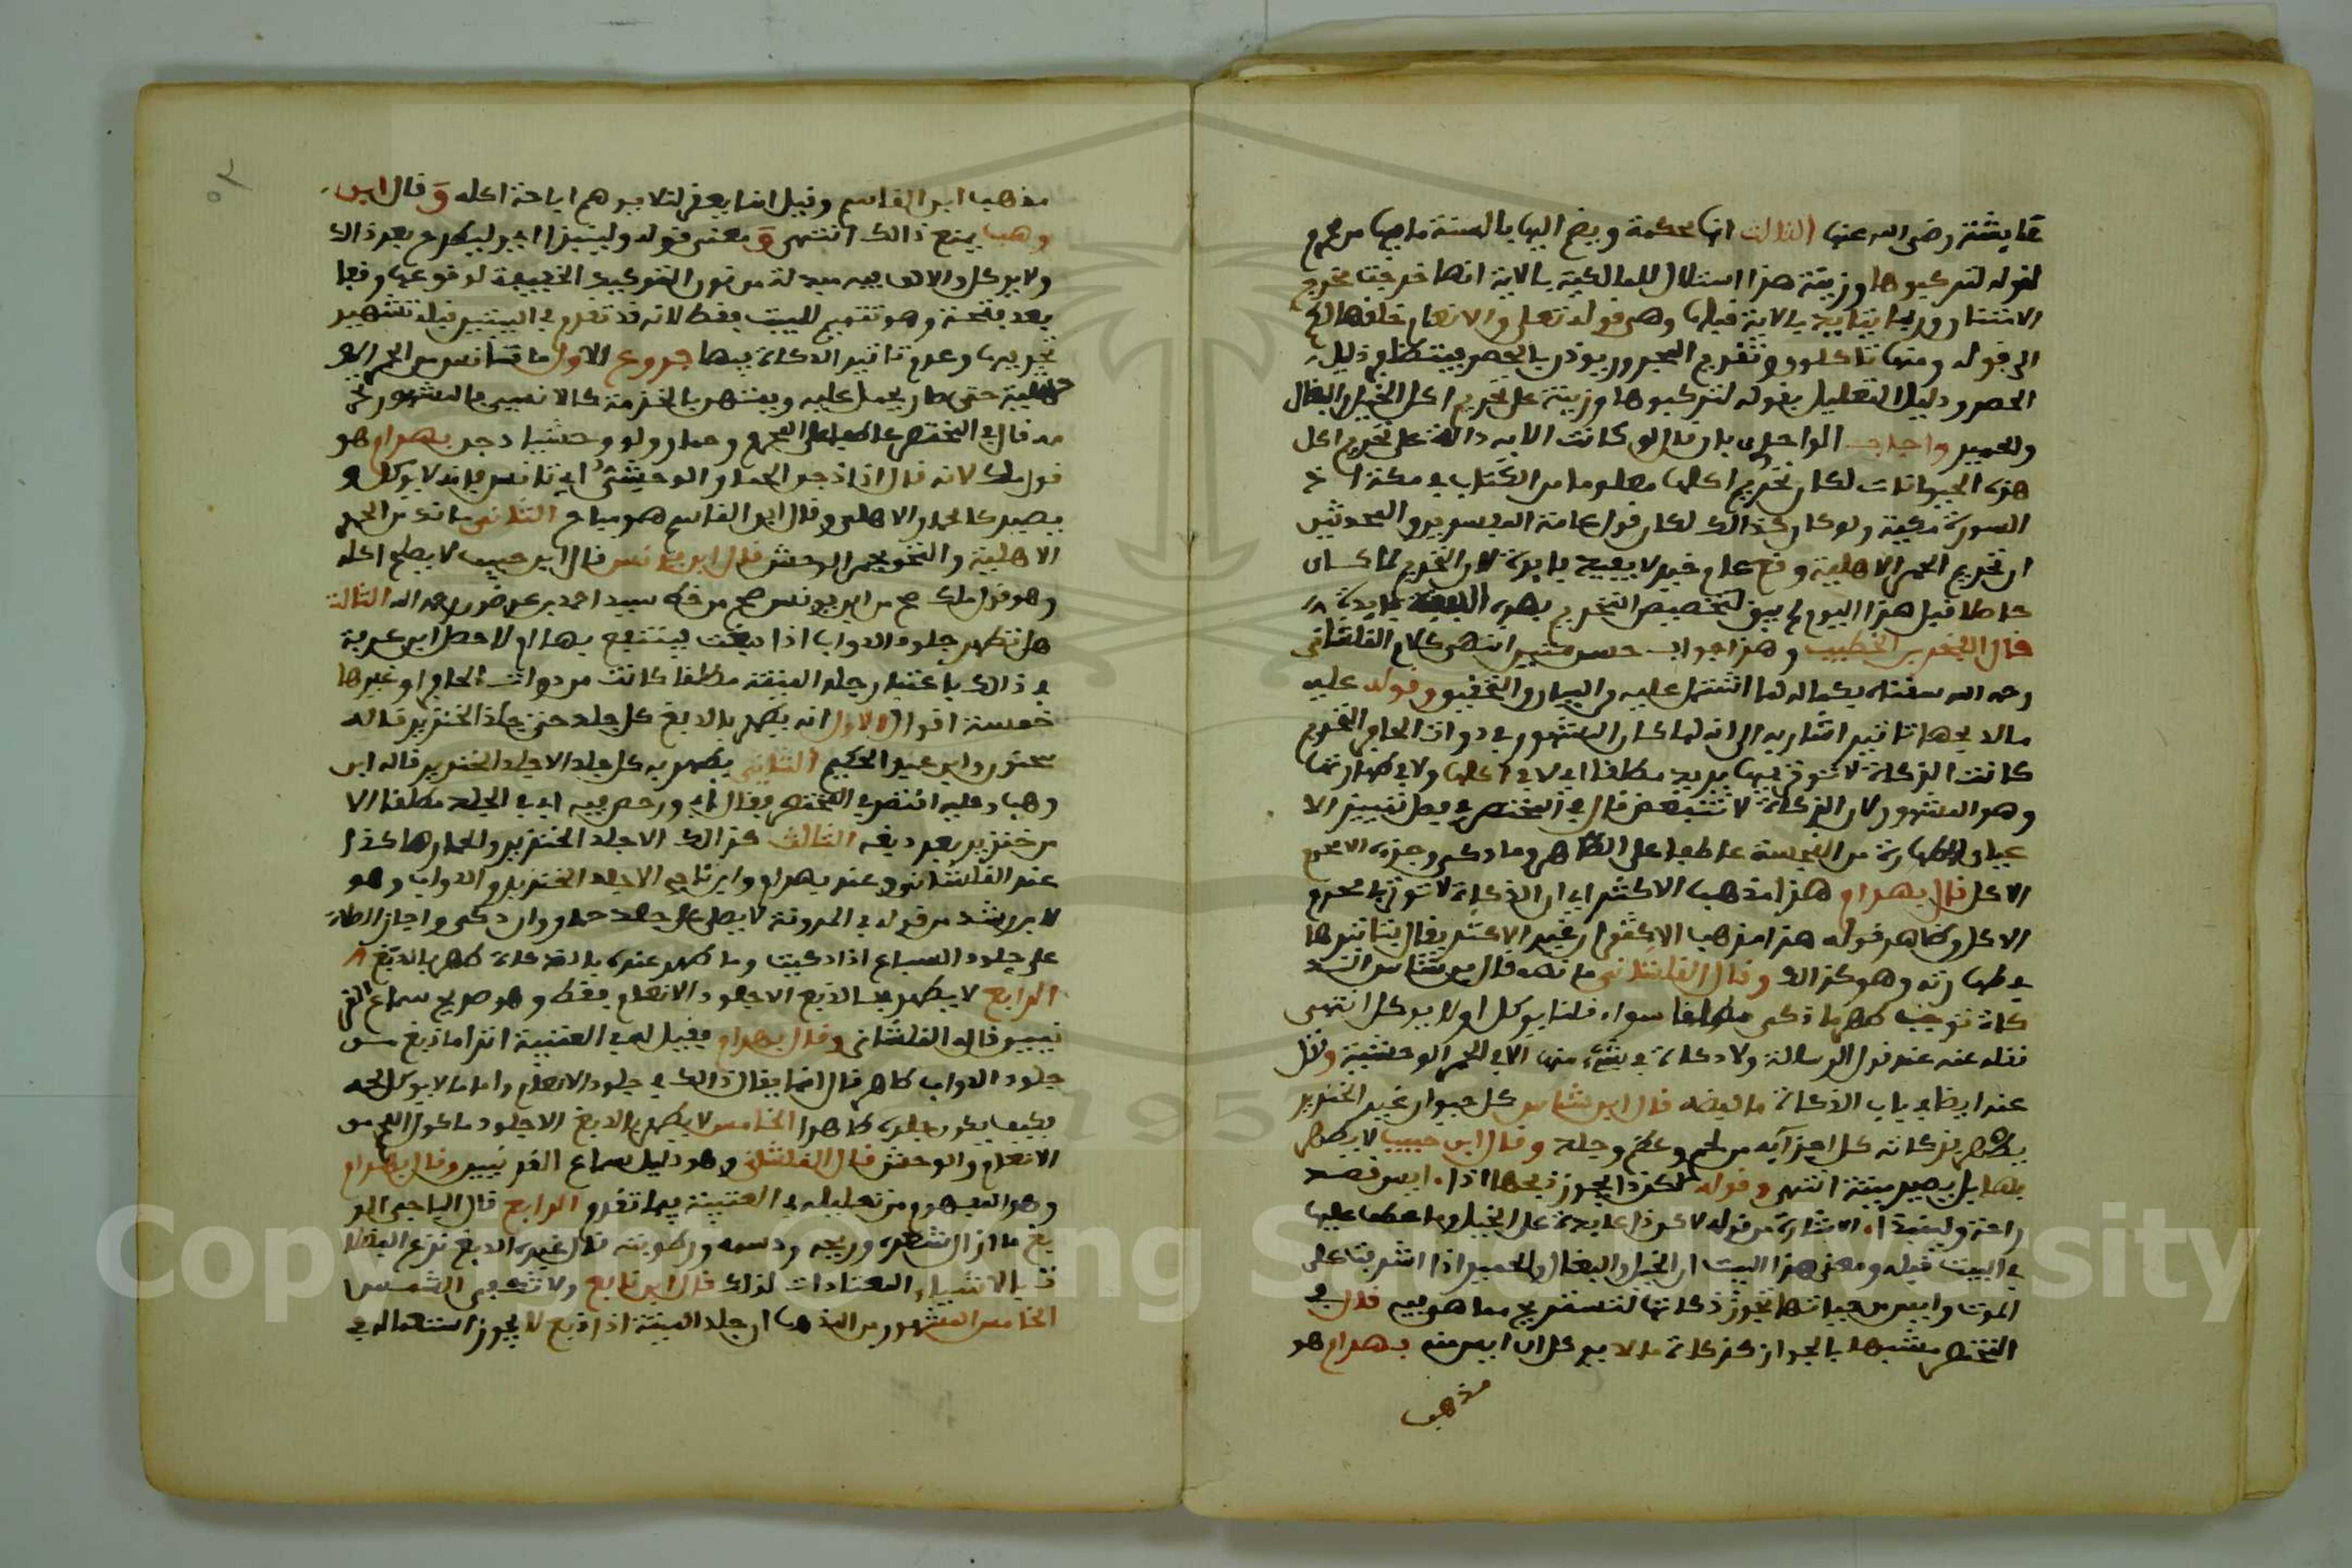 عايشة رضي الله عنها الثالث انها محكمة ويضم اليها بالسنة ما جا من محرم
لقوله لتركبوها وزينة هذا استدلال للمالكية بالاية انها خرجت مخرج
الامتنان وربما يتايد بالاية قبلها وهي قوله تعلى والانعام خلقها لكم
الى قوله ومنها تاكلون وتقديم المجرور يوذن بالحصر
الحصر ودليل التعليل بقوله لتركبوها وزينة على تحريم اكل الخيل والبغال
والحمير واجاب الواحدي بان قال لو كانت الاية دالة على تحريم اكل
هذه الحيوانات لكان تحريم اكلها معلوما من الكتاب في مكة اذ
السورة مكية ولو كان كذالك لكان قول عامة المفسرين والمحدثين
ان تحريم الحمر الاهلية وقع عام خيبر لا يفيد فايدة لان التحريم لما كان
حاصلا قبل هذا اليوم لم يبق لتخصيص التحريم بهذه فايدة
قال الفخر بن الخطيب وهذا جواب حسن متين انتهى كلام القلشاني
رحمه الله سقناه بكماله لما اشتمل عليه من البيان والتحقيق وقوله عليه
مالا بها تاثير اشار به الى انه لما كان المشهور في ذوات الحافر التحريم
كانت الزكاة لا توثر فيها يريد مطلقا اي لا في اكلها ولا في طهارتها
وهو المشهور لان الزكاة لا تتبعض قال في المختصر في فصل تمييز الا
عيان الطاهرة من النجسة عاطفا على الطاهر وما ذكى وجزءه الا محرم
الاكل قال بهرام هذا مذهب الاكثر اي ان الذكاة لا توثر في محرم
الاكل وظاهر قوله هذا مذهب الاكثر ان غير الاكثر يقال بتاثيرها
في طهارته وهو كذالك وقال القلشاني ما نصه قال ابن شاس الذ
كاة توجب طهر ما ذكى مطلقا سواء قلنا يوكل او لا يوكل انتهى
نقله عنه عند قول الرسالة ولا ذكاة في شيء منها الا في الحمر الوحشية ونقل
عنه ايضا في باب الذكاة ما لفظه قال ابن شاس كل حيوان غير الخنزير
يطهر بذكاته كل اجزائه من لحم وعظم وجلد وقال ابن حبيب لا يطهر
بها بل يصير ميتة انتهى وقوله لكن ذا يجوز ذبحها اذا ايس قصد
راحة وليفدا الاشارة من قوله لاكن ذا عايدة على الخيل وما عطف عليها
في البيت قبله ومعنى هذا البيت ان الخيل والبغال والحمير اذا اشرفت على
الموت وايس من حياتها تجوز ذكاتها لتستريح مما هي فيه قال في
المختصر مشبها بالجواز كذكاة مالا يوكل ان ايس منه بهرام هو
مذهب
مذهب ابن القاسم وقيل انما يعقر لئلا يوهم اباحة اكله وقال ابن
وهب يمنع ذالك انتهى ومعنى قوله وليفدا اي ليطرح بعد ذالك
ولا يوكل والالف فيه مبدلة من نون التوكيد الخفيفة لوقوعها وقفا
بعد فتحة وهو تتميم للبيت فقط لانه قد تقدم في البيتين قبله تشهير
تحريمها وعدم تاثير الذكاة فيها فروع الاول ما تانس من الحمر الو
حشية حتى صار يحمل عليه ويمتهن بالخدمة كالانسي فالمشهور تحر
مه قال في المختصر عاطفا على المحرم وحمار ولو وحشيا دجن بهرام هو
قول ملك لانه قال اذا دجن الحمار الوحشي اي تانس فانه لا يوكل و
يصير كالحمار الاهلي وقال ابن القاسم هو مباح الثاني ما تولد من الحمر
الاهلية والحمر الوحش قال ابن يونس قال ابن حبيب لا يصلح اكله
وهو قول ملك صح من ابن يونس صح من خط سيد احمد بن رحمه الله الثالث
هل تطهر جلود الدواب اذا دبغت فينتفع بها ام لا حصل ابن عرفة
في ذالك باعتبار جلد الميتة مطلقا كانت من ذوات الحافر او غيرها
خمسة اقوال الاول انه يطهر بالدبغ كل جلد حتى جلد الخنزير قاله
سحنون وابن عبد الحكم الثاني يطهر به كل جلد الا جلد الخنزير قاله ابن
وهب وعليه اقتصر في المختصر فقال ورخص فيه اي في الجلد مطلقا الا
من خنزير بعد دبغه الثالث كذالك الا جلد الخنزير والحمار هاكذا
عند القلشاني وعند بهرام وابن ناجي الا جلد الخنزير والدواب وهو
لابن رشد من قوله في المدونة لا يصلى على جلد حمار وان ذكى واجاز الصلاة
على جلود السباع اذا ذكيت وما طهر عنده بالذكاة طهر بالدبغ
الرابع لا يطهر بالدبغ الا جلود الانعام فقط وهو صريح سماع القر
نيين قاله القلشاني وقال بهرام فقيل له في العتبية اترا ما دبغ من
جلود الدواب طاهر قال انما يقال ذالك في جلود الانعام واما ما لا يوكل لحمه
فكيف يكون جلده طاهرا الخامس لا يطهر بالدبغ الا جلود ماكول اللحم من
الانعام والوحش قال القلشاني وهو دليل سماع القرنيين وقال بهرام
وهو المفهوم من تعليله في العتبية فيما تقدم الرابع قال الباجي الد
بغ ما ازال شعره وريحه ودسمه ورطوبته قال غيره الدبغ نزع الفضلا
ت بالاشياء المعتادات لذلك قال ابن نافع ولا تكفي الشمس
الخامس المشهور من المذهب ان جلد الميتة اذا دبغ لا يجوز استعماله في